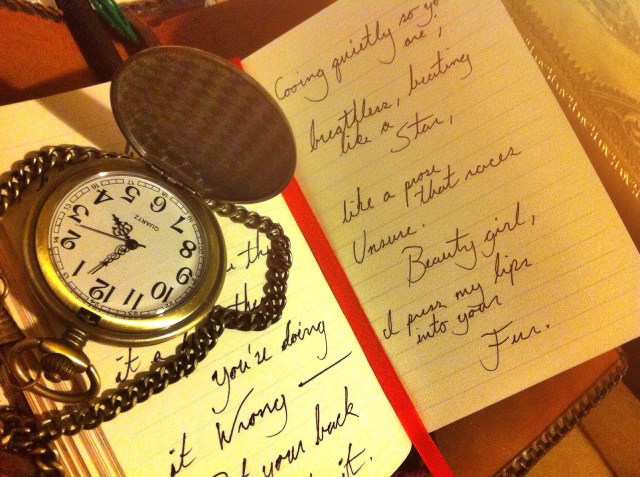 QUARTZ
12
1
2
3
4
5
6
7
8
9
10
11
the
the
it a
you're doing
it Wrong —
your back
it.
Cooing quietly so yo
are;
breathless, beating
like a Star,
like a prose
that races
Unsure.
Beauty girl,
I press my lips
into your
Fur.